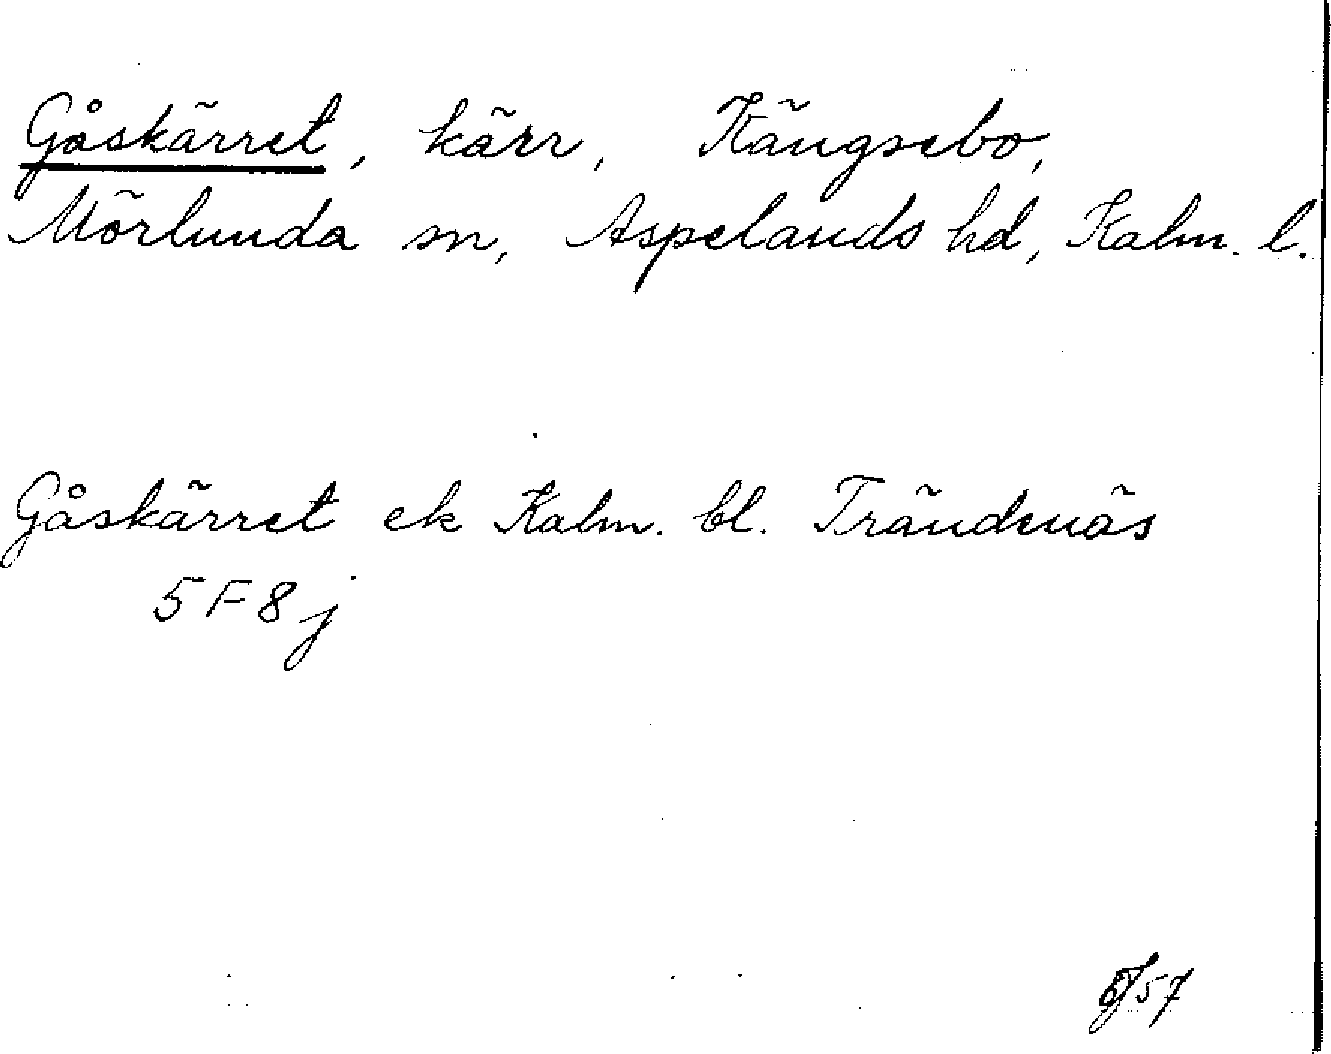 Gåskärret, kärr, Kängsebo,
Mörlunda sn, Aspelands hd, Kalm. l.
Gåskärret ek Kalm. bl. Trändenäs
5F8j